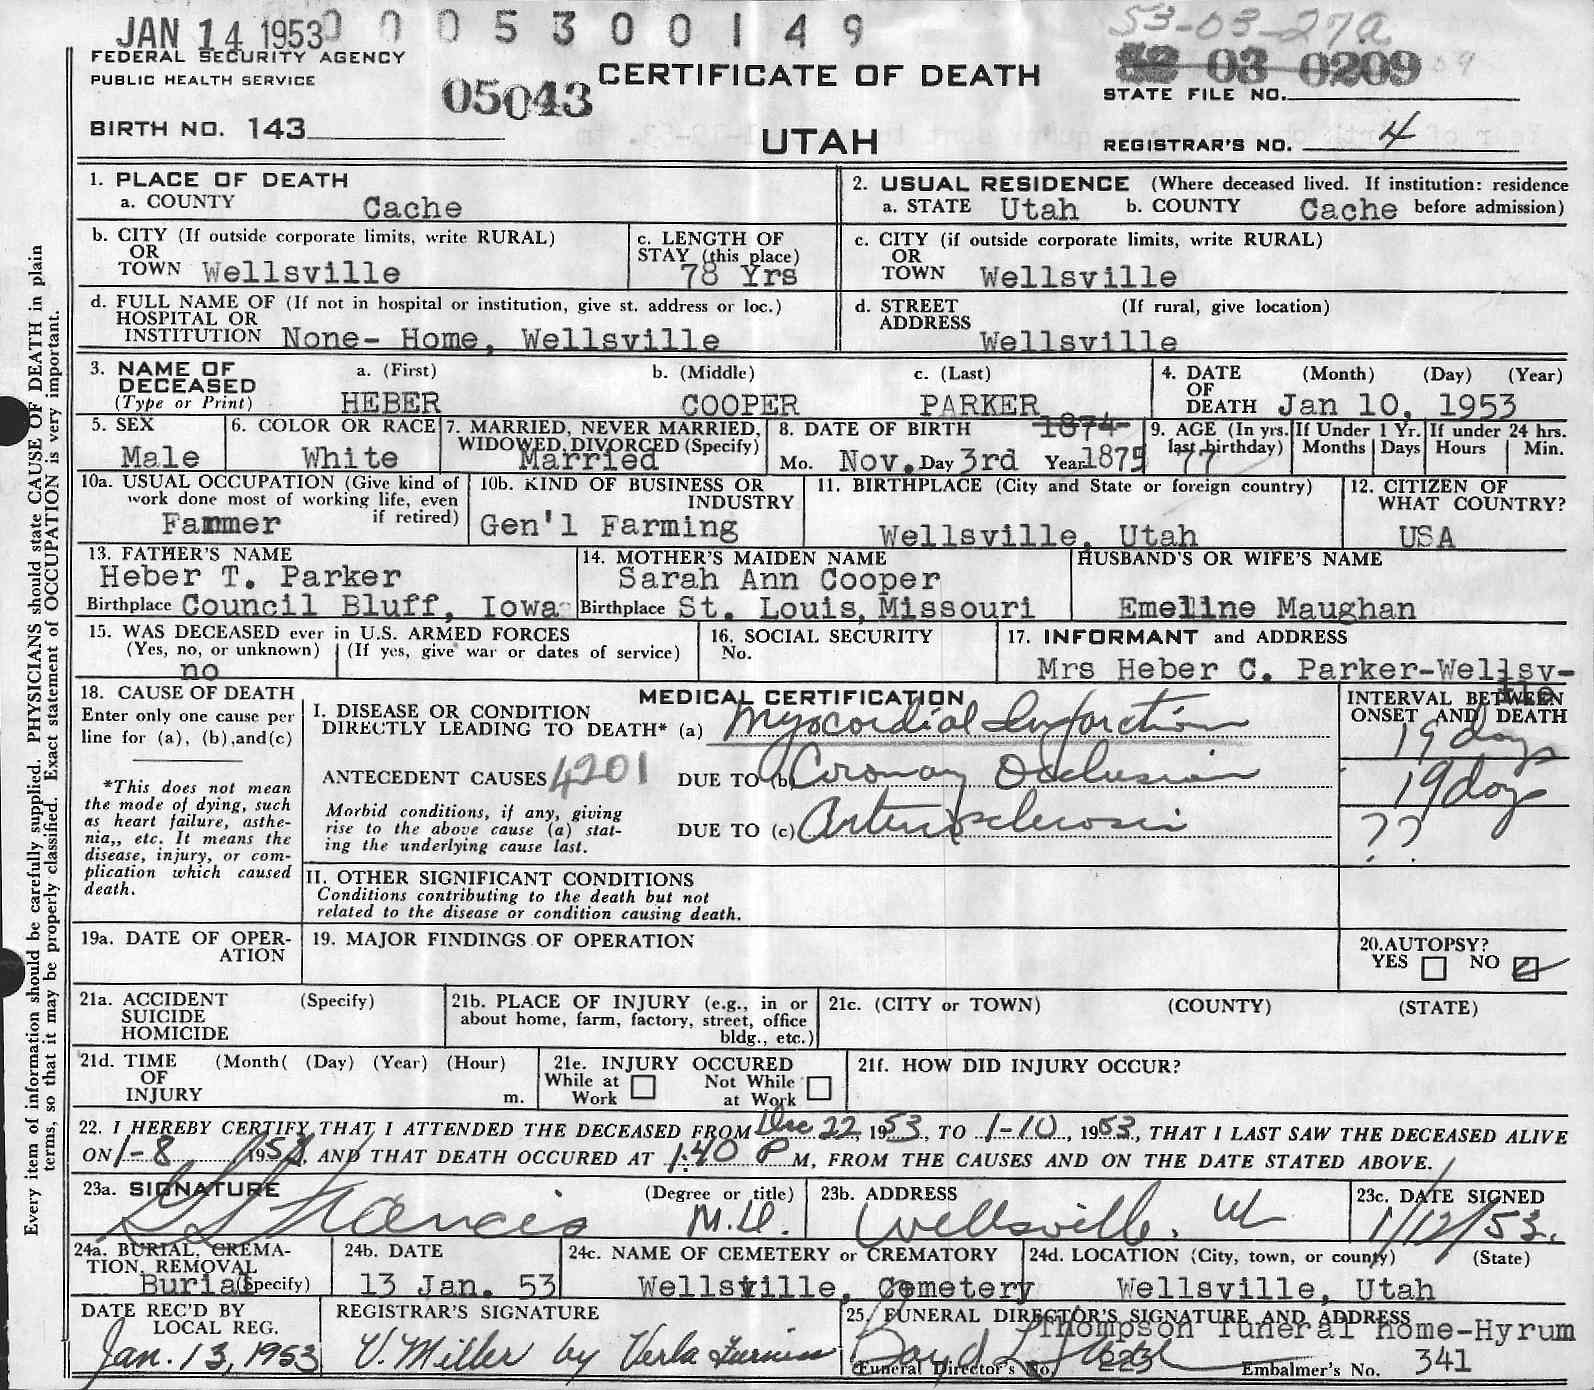 JAN 14 1953 0 0 0 5 3 0 0 1 4 9 53-03-27a
FEDERAL SECURITY AGENCY
PUBLIC HEALTH SERVICE
05043 CERTIFICATE OF DEATH 52 03 0209
STATE FILE NO.
BIRTH NO. 143 UTAH REGISTRAR'S NO. 4
1. PLACE OF DEATH
a. COUNTY Cache
2. USUAL RESIDENCE (Where deceased lived. If institution: residence
a. STATE Utah b. COUNTY Cache before admission)
b. CITY (If outside corporate limits, write RURAL)
OR
TOWN Wellsville
c. LENGTH OF
STAY (this place)
78 Yrs
c. CITY (if outside corporate limits, write RURAL)
OR
TOWN Wellsville
d. FULL NAME OF (If not in hospital or institution, give st. address or loc.)
HOSPITAL OR
INSTITUTION None- Home, Wellsville
d. STREET (If rural, give location)
ADDRESS Wellsville
3. NAME OF
DECEASED
(Type or Print)
a. (First) b. (Middle) c. (Last)
HEBER COOPER PARKER
4. DATE (Month) (Day) (Year)
OF
DEATH Jan 10, 1953
5. SEX
Male
6. COLOR OR RACE
White
7. MARRIED, NEVER MARRIED,
WIDOWED, DIVORCED (Specify)
Married
8. DATE OF BIRTH 1874
Mo. Nov. Day 3rd Year 1875
9. AGE (In yrs.
last birthday)
77
If Under 1 Yr.
Months Days
If under 24 hrs.
Hours Min.
10a. USUAL OCCUPATION (Give kind of
work done most of working life, even
if retired)
Farmer
10b. KIND OF BUSINESS OR
INDUSTRY
Gen'l Farming
11. BIRTHPLACE (City and State or foreign country)
Wellsville, Utah
12. CITIZEN OF
WHAT COUNTRY?
USA
13. FATHER'S NAME
Heber T. Parker
Birthplace Council Bluff, Iowa
14. MOTHER'S MAIDEN NAME
Sarah Ann Cooper
Birthplace St. Louis, Missouri
HUSBAND'S OR WIFE'S NAME
Emeline Maughan
15. WAS DECEASED ever in U.S. ARMED FORCES
(Yes, no, or unknown) (If yes, give war or dates of service)
no
16. SOCIAL SECURITY
No.
17. INFORMANT and ADDRESS
Mrs Heber C. Parker-Wellsv-
ille
18. CAUSE OF DEATH
Enter only one cause per
line for (a), (b),and(c)
*This does not mean
the mode of dying, such
as heart failure, asthe-
nia,, etc. It means the
disease, injury, or com-
plication which caused
death.
MEDICAL CERTIFICATION
I. DISEASE OR CONDITION
DIRECTLY LEADING TO DEATH* (a) Myocordial Infarction
ANTECEDENT CAUSES 4201 DUE TO (b) Coronay Occlusion
Morbid conditions, if any, giving
rise to the above cause (a) stat-
ing the underlying cause last.
DUE TO (c) Arteriosclerosis
INTERVAL BETWEEN
ONSET AND DEATH
19 days
19 days
??
II. OTHER SIGNIFICANT CONDITIONS
Conditions contributing to the death but not
related to the disease or condition causing death.
19a. DATE OF OPER-
ATION
19. MAJOR FINDINGS OF OPERATION
20.AUTOPSY?
YES NO
21a. ACCIDENT (Specify)
SUICIDE
HOMICIDE
21b. PLACE OF INJURY (e.g., in or
about home, farm, factory, street, office
bldg., etc.)
21c. (CITY or TOWN) (COUNTY) (STATE)
21d. TIME (Month( (Day) (Year) (Hour)
OF
INJURY m.
21e. INJURY OCCURED
While at Not While
Work at Work
21f. HOW DID INJURY OCCUR?
22. I HEREBY CERTIFY, THAT I ATTENDED THE DECEASED FROM Dec 22, 1953, TO 1-10, 1953, THAT I LAST SAW THE DECEASED ALIVE
ON 1-8 1953, AND THAT DEATH OCCURED AT 1:40 P M, FROM THE CAUSES AND ON THE DATE STATED ABOVE.
23a. SIGNATURE (Degree or title)
Francis M.D.
23b. ADDRESS
Wellsville, Ut
23c. DATE SIGNED
1/12/53.
24a. BURIAL, CREMA-
TION, REMOVAL
Burial (Specify)
24b. DATE
13 Jan. 53
24c. NAME OF CEMETERY or CREMATORY
Wellsville, Cemetery
24d. LOCATION (City, town, or county) (State)
Wellsville, Utah
DATE REC'D BY
LOCAL REG.
Jan. 13, 1953
REGISTRAR'S SIGNATURE
V. Miller by Verla
25. FUNERAL DIRECTOR'S SIGNATURE AND ADDRESS
Thompson funeral home-Hyrum
Boyd
Funeral Director's No. 223 Embalmer's No. 341
Every item of information should be carefully supplied. PHYSICIANS should state CAUSE OF DEATH in plain
terms, so that it may be properly classified. Exact statement of OCCUPATION is very important.